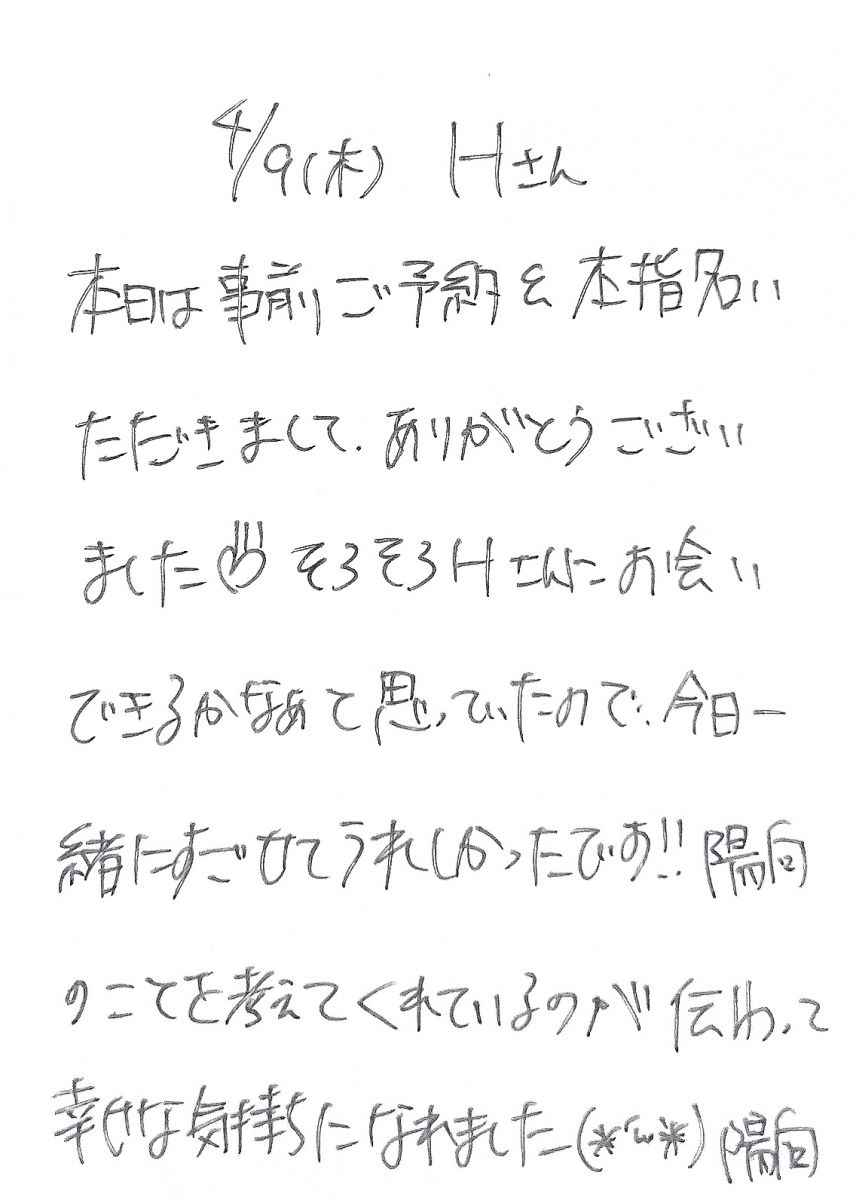 4/9(木) Hさん
本日は事前ご予約&本指名い
ただきまして、ありがとうござい
ました そろそろHさんにお会い
できるかなぁて思っていたので、今日一
緒にすごせてうれしかったです!! 陽向
のことを考えてくれているのが伝わって
幸せな気持ちになれました(*'ω*) 陽向